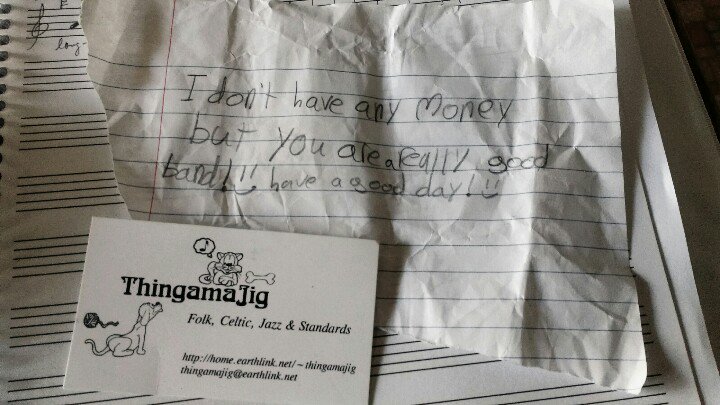 I don't have any money
but you are a really good
band! have a good day!
ThingamaJig
Folk, Celtic, Jazz & Standards
http://home.earthlink.net/~thingamajig
thingamajig@earthlink.net